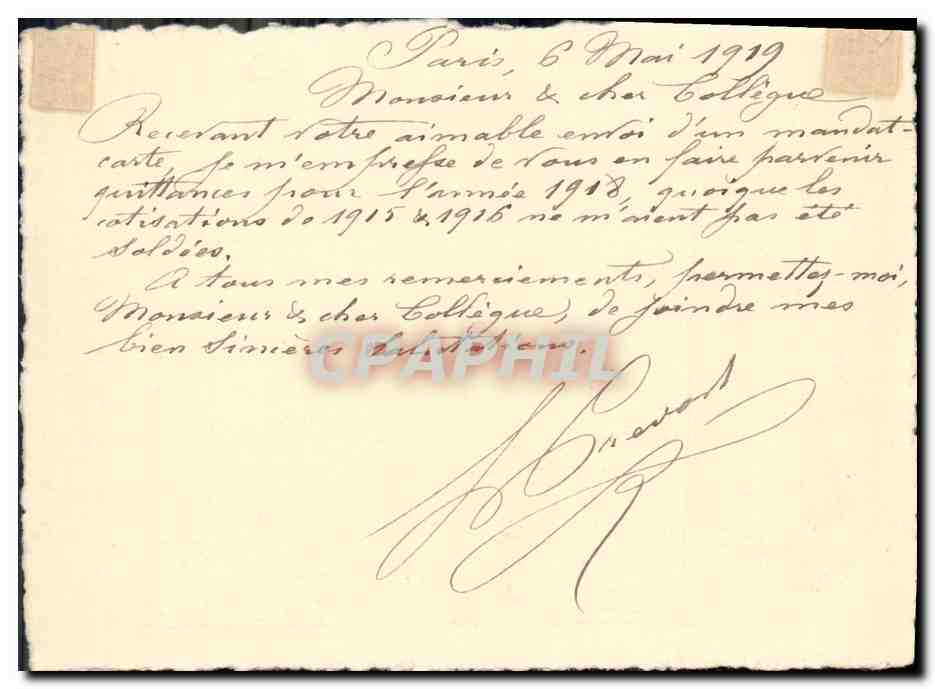 Paris, 6 Mai 1919
Monsieur & cher Collègue
Recevant votre aimable envoi d'un mandat-
carte, je m'empresse de vous en faire parvenir
quittances pour l'année 1918, quoique les
cotisations de 1915 & 1916 ne m'aient pas été
soldées.
A tous mes remerciements, permettez-moi,
Monsieur & cher Collègue, de joindre mes
bien sincères salutations.
CPAPHIL
Prevost